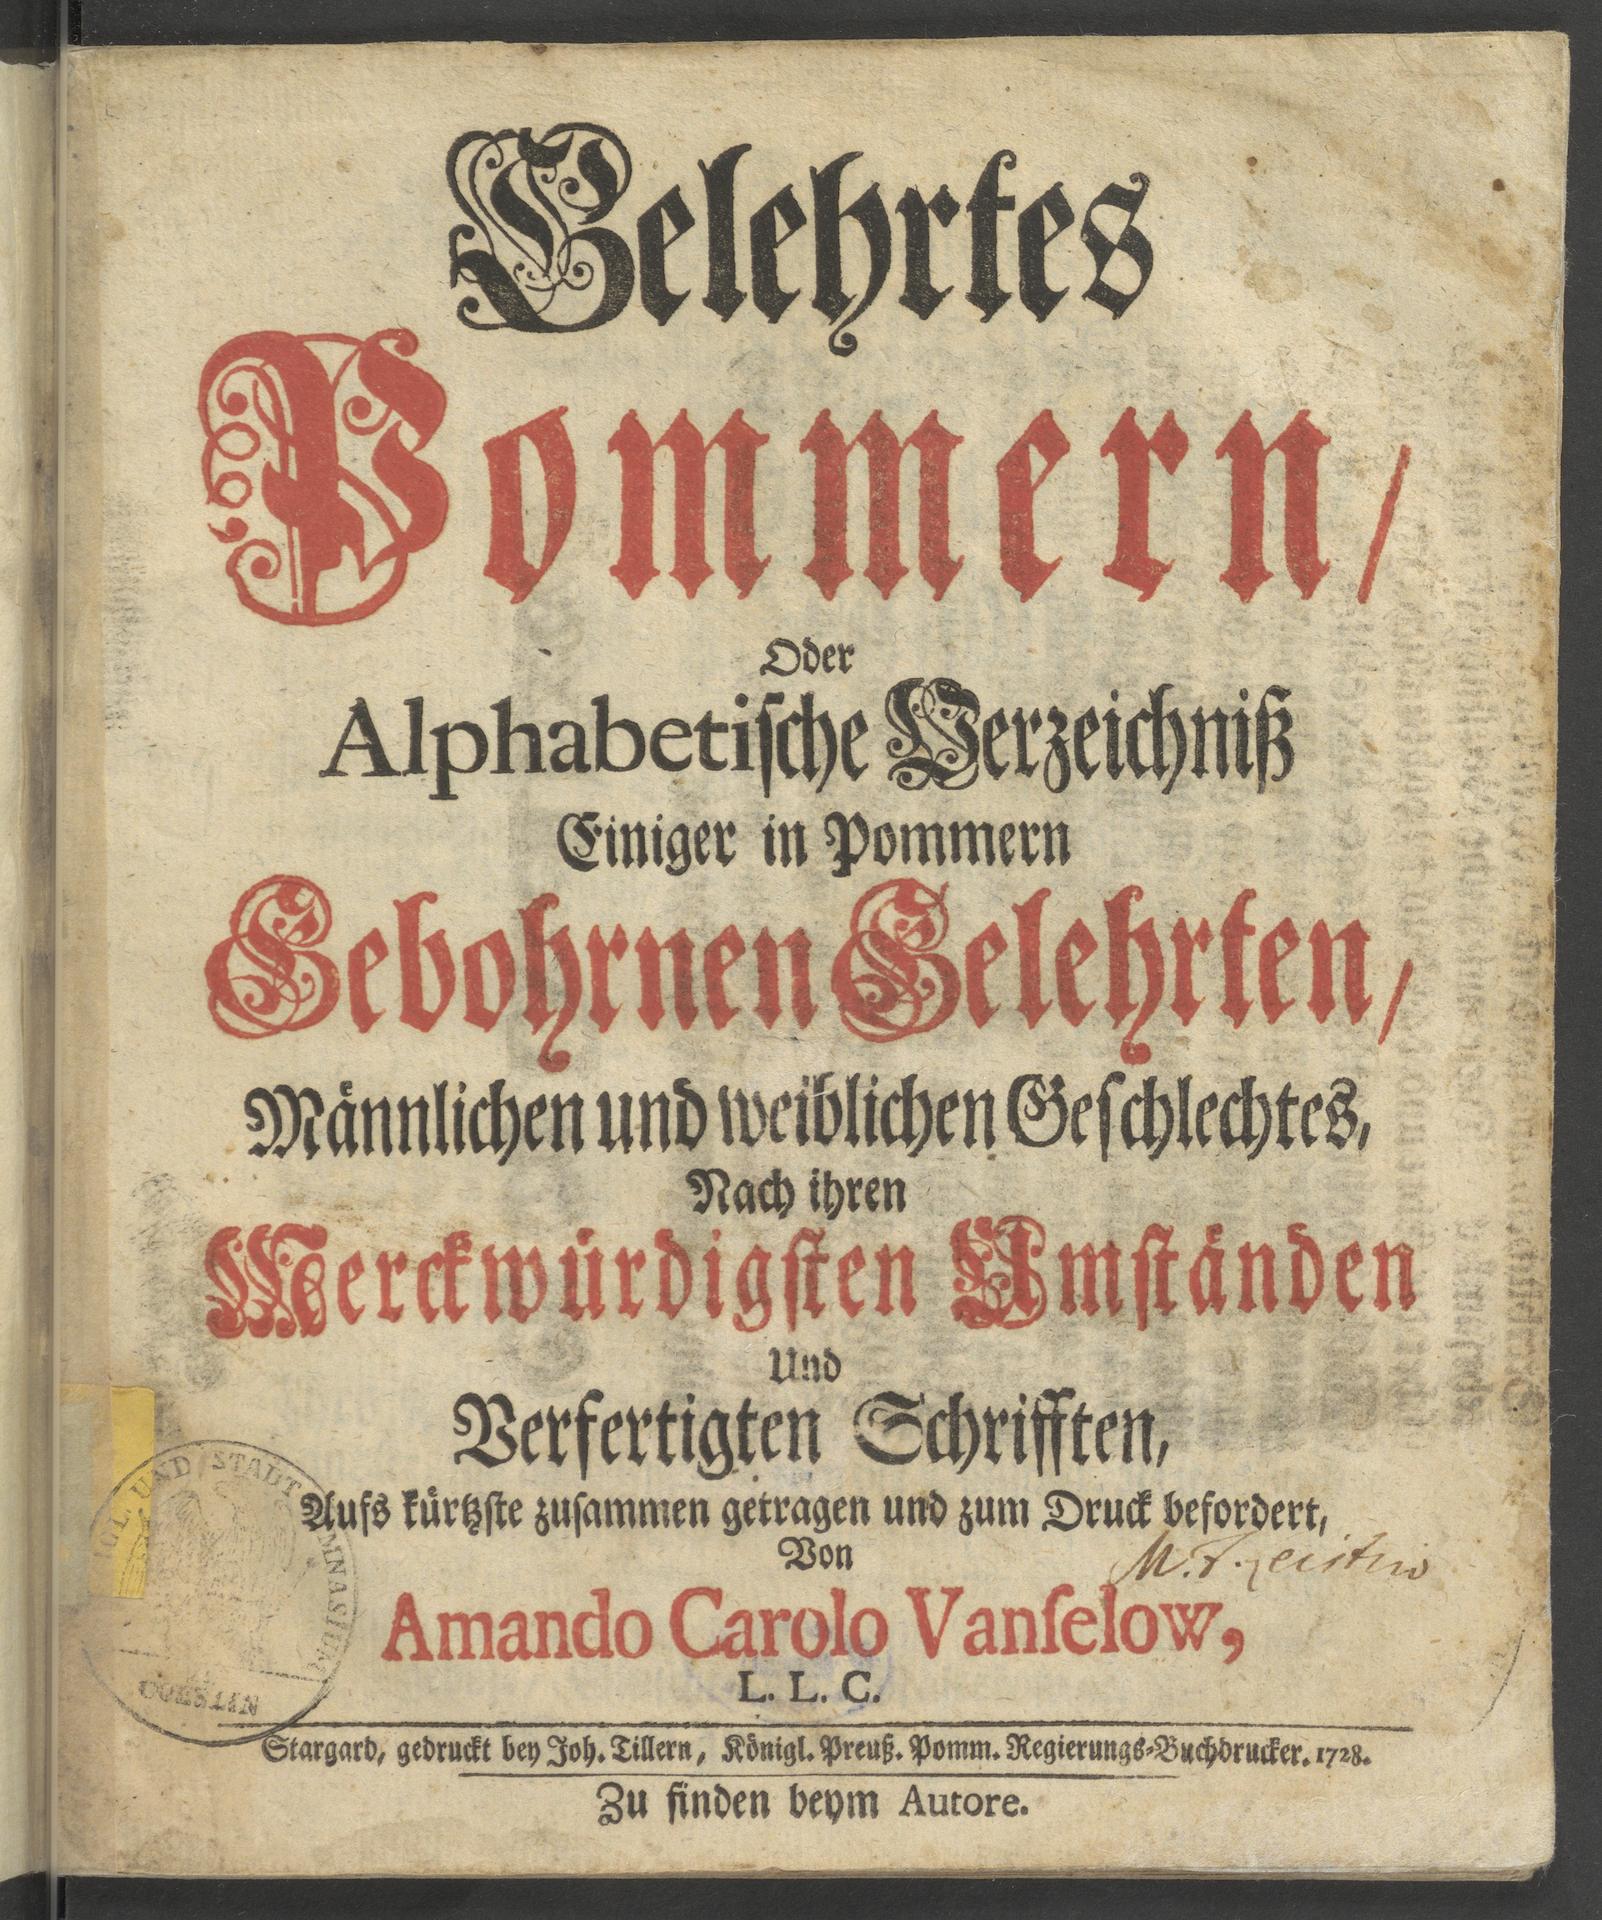 Gelehrtes
Pommern/
Oder
Alphabetische Verzeichniß
Einiger in Pommern
Gebohrnen Gelehrten/
Männlichen und weiblichen Geschlechtes,
Nach ihren
Merckwürdigsten Umständen
Und
Verfertigten Schrifften,
Aufs kürtzste zusammen getragen und zum Druck befordert,
Von
Amando Carolo Vanselow,
L. L. C.
UND STADT
COESLIN
Stargard, gedruckt bey Joh. Tillern, Königl. Preuß. Pomm. Regierungs-Buchdrucker. 1728.
Zu finden beym Autore.